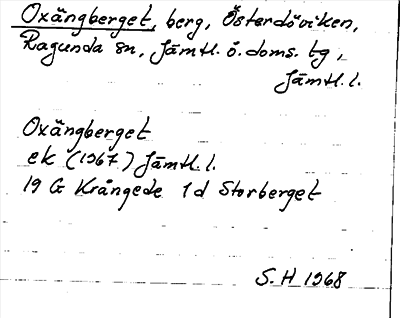 Oxängberget, berg, Österdöviken,
Ragunda sn, Jämtl. ö. doms. tg,
Jämtl. l.
Oxängberget
ek (1967) Jämtl. l.
19 G Krångede 1d Storberget
S. H 1968